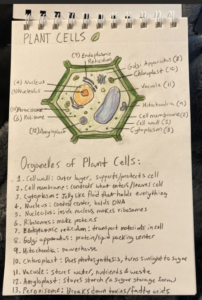 PLANT CELLS
(7) Endoplasmic
Reticulum
Golgi Apparatus (8)
Chloroplast (10)
(4) Nucleus
(5) Nucleolus
Vacuole (11)
Mitochondria (9)
(13) Peroxisome
(6) Ribosome
Cell membrane (2)
Cell wall (1)
Cytoplasm (3)
(12) Amyloplast
Organelles of Plant Cells:
1. Cell wall: outer layer, supports/protects cell
2. Cell membrane: controls what enters/leaves cell
3. Cytoplasm: Jelly like fluid that holds everything
4. Nucleus: Control center, holds DNA
5. Nucleolus: inside nucleus, makes ribosomes
6. Ribosomes: make proteins
7. Endoplasmic reticulum: transport materials in cell
8. Golgi apparatus: protein/lipid packing center
9. Mitochondria: powerhouse
10. Chloroplast: Does photosynthesis, turns sunlight to sugar
11. Vacuole: stores water, nutrients & waste
12. Amyloplast: stores starch (a sugar storage form)
13. Peroxisome: Breaks down toxins/fatty acids